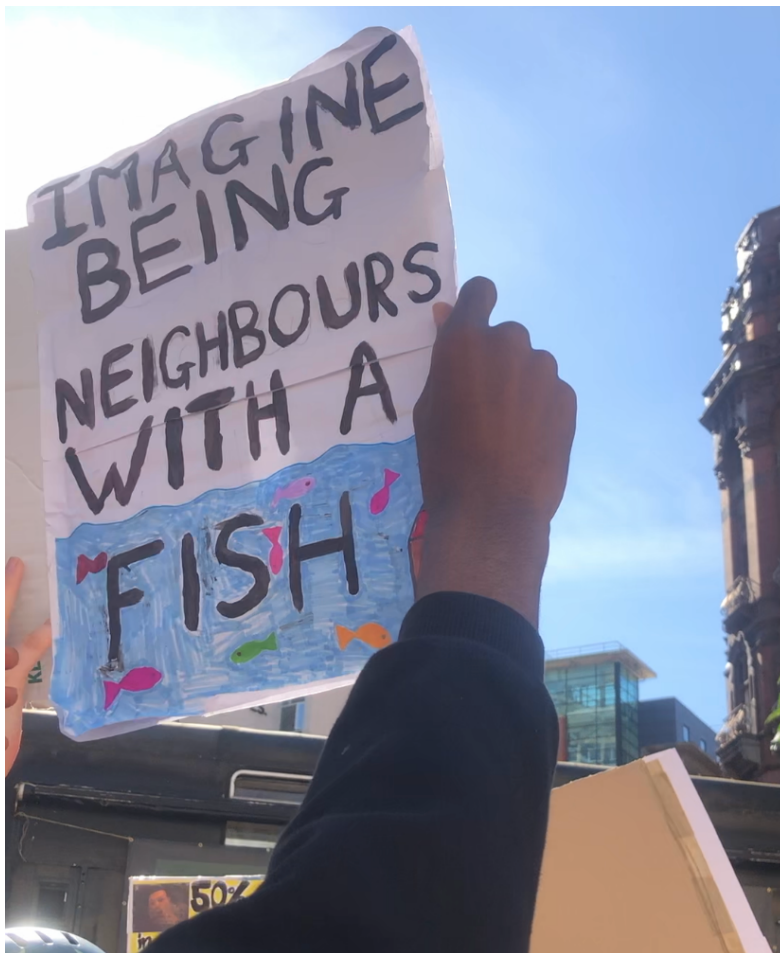 IMAGINE
BEING
NEIGHBOURS
WITH A
FISH
50%